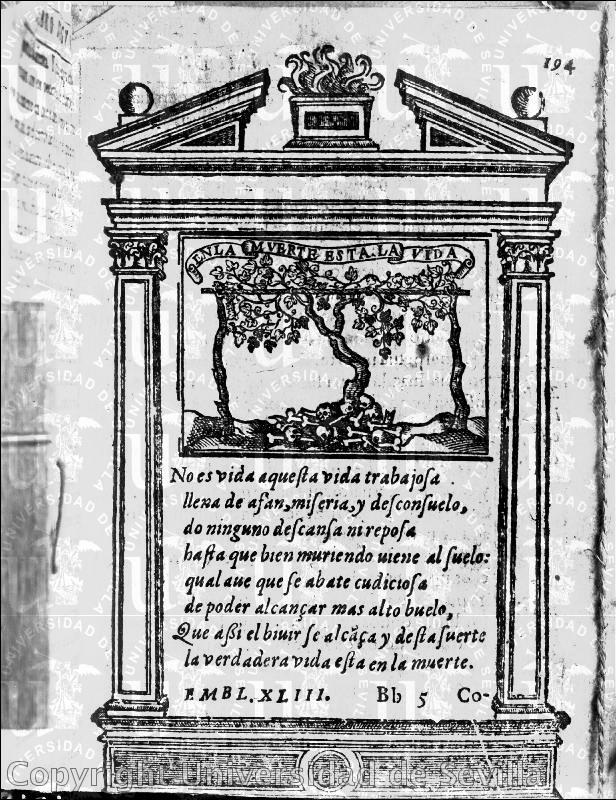 194
EN LA MVERTE ESTA. LA VIDA
No es vida aquesta vida trabajosa
llena de afan, miseria, y desconsuelo,
do ninguno descansa ni reposa
hasta que bien muriendo uiene al suelo:
qual aue que se abate cudiciosa
de poder alcançar mas alto buelo,
Que assi el biuir se alcãça y desta suerte
la verdadera vida esta en la muerte.
EMBL. XLIII. Bb 5 Co-
Copyright Universidad de Sevilla